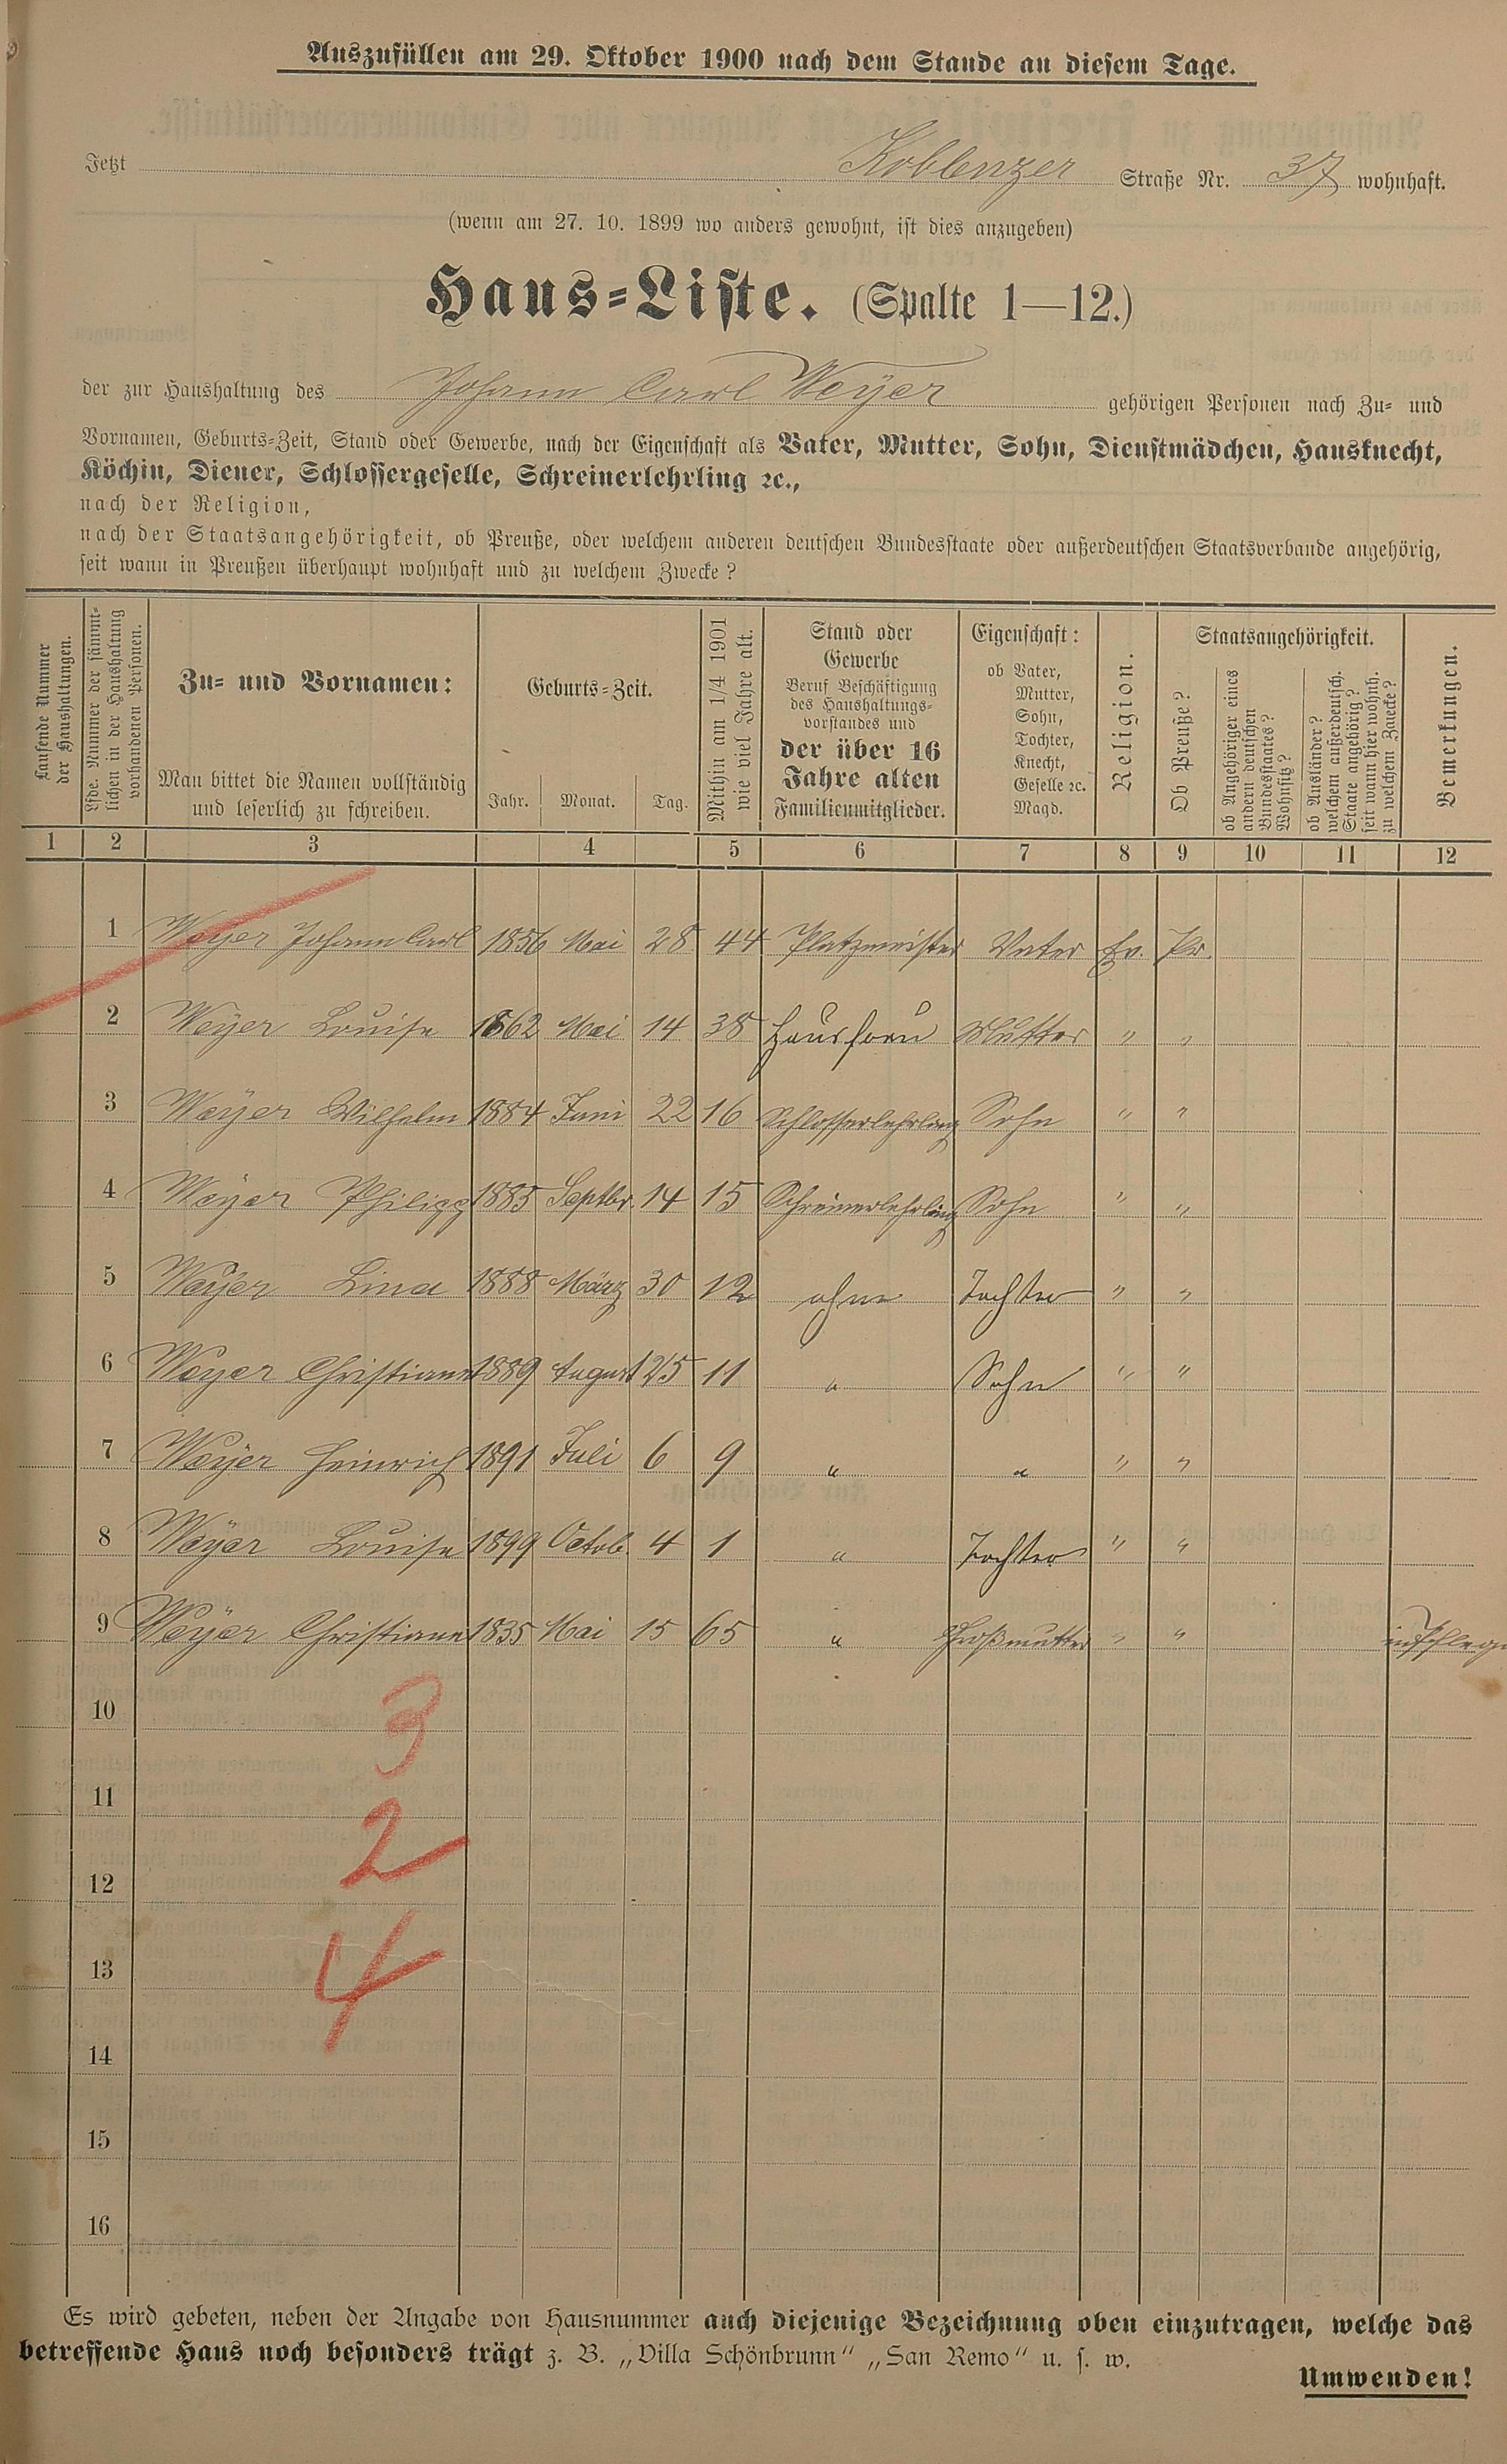 Auszufüllen am 29. Oktober 1900 nach dem Stande an diesem Tage.
Jetzt Koblenzer Straße Nr. 37 wohnhaft.
(wenn am 27. 10. 1899 wo anders gewohnt, ist dies anzugeben)
Haus-Liste. (Spalte 1—12.)
der zur Haushaltung des Johann Carl Weÿer gehörigen Personen nach Zu- und
Vornamen, Geburts-Zeit, Stand oder Gewerbe, nach der Eigenschaft als Vater, Mutter, Sohn, Dienstmädchen, Hausknecht,
Köchin, Diener, Schlossergeselle, Schreinerlehrling ꝛc.,
nach der Religion,
nach der Staatsangehörigkeit, ob Preuße, oder welchem anderen deutschen Bundesstaate oder außerdeutschen Staatsverbande angehörig,
seit wann in Preußen überhaupt wohnhaft und zu welchem Zwecke?
Laufende Nummer
der Haushaltungen.
Lfde. Nummer der sämmt-
lichen in der Haushaltung
vorhandenen Personen.
Zu- und Vornamen:
Man bittet die Namen vollständig
und leserlich zu schreiben.
Geburts-Zeit.
Jahr. Monat. Tag.
Mithin am 1/4 1901
wie viel Jahre alt.
Stand oder
Gewerbe
Beruf Beschäftigung
des Haushaltungs-
vorstandes und
der über 16
Jahre alten
Familienmitglieder.
Eigenschaft:
ob Vater,
Mutter,
Sohn,
Tochter,
Knecht,
Geselle ꝛc.
Magd.
Religion.
Staatsangehörigkeit.
Ob Preuße?
ob Angehöriger eines
andern deutschen
Bundesstaates?
Wohnsitz?
ob Ausländer?
welchem außerdeutsch.
Staate angehörig?
seit wann hier wohnh.
zu welchem Zwecke?
Bemerkungen.
1 2 3 4 5 6 7 8 9 10 11 12
1 Weyer Johann Carl 1856 Mai 28 44 Platzmeister Vater Ev. Pr.
2 Weÿer Louise 1862 Mai 14 38 Hausfrau Mutter " "
3 Weÿer Wilhelm 1884 Juni 22 16 Schlosserlehrling Sohn " "
4 Weÿer Philipp 1885 Septbr. 14 15 Schreinerlehrling Sohn " "
5 Weÿer Lina 1888 März 30 12 ohne Tochter " "
6 Weyer Christian 1889 August 25 11 " Sohn " "
7 Weÿer Heinrich 1891 Juli 6 9 " " " "
8 Weÿer Louise 1899 Octob. 4 1 " Tochter " "
9 Weÿer Christiane 1835 Mai 15 65 " Großmutter " " in Pflege
10
3
11
2
12
13
4
14
15
16
Es wird gebeten, neben der Angabe von Hausnummer auch diejenige Bezeichnung oben einzutragen, welche das
betreffende Haus noch besonders trägt z. B. „Villa Schönbrunn“ „San Remo“ u. s. w.
Umwenden!